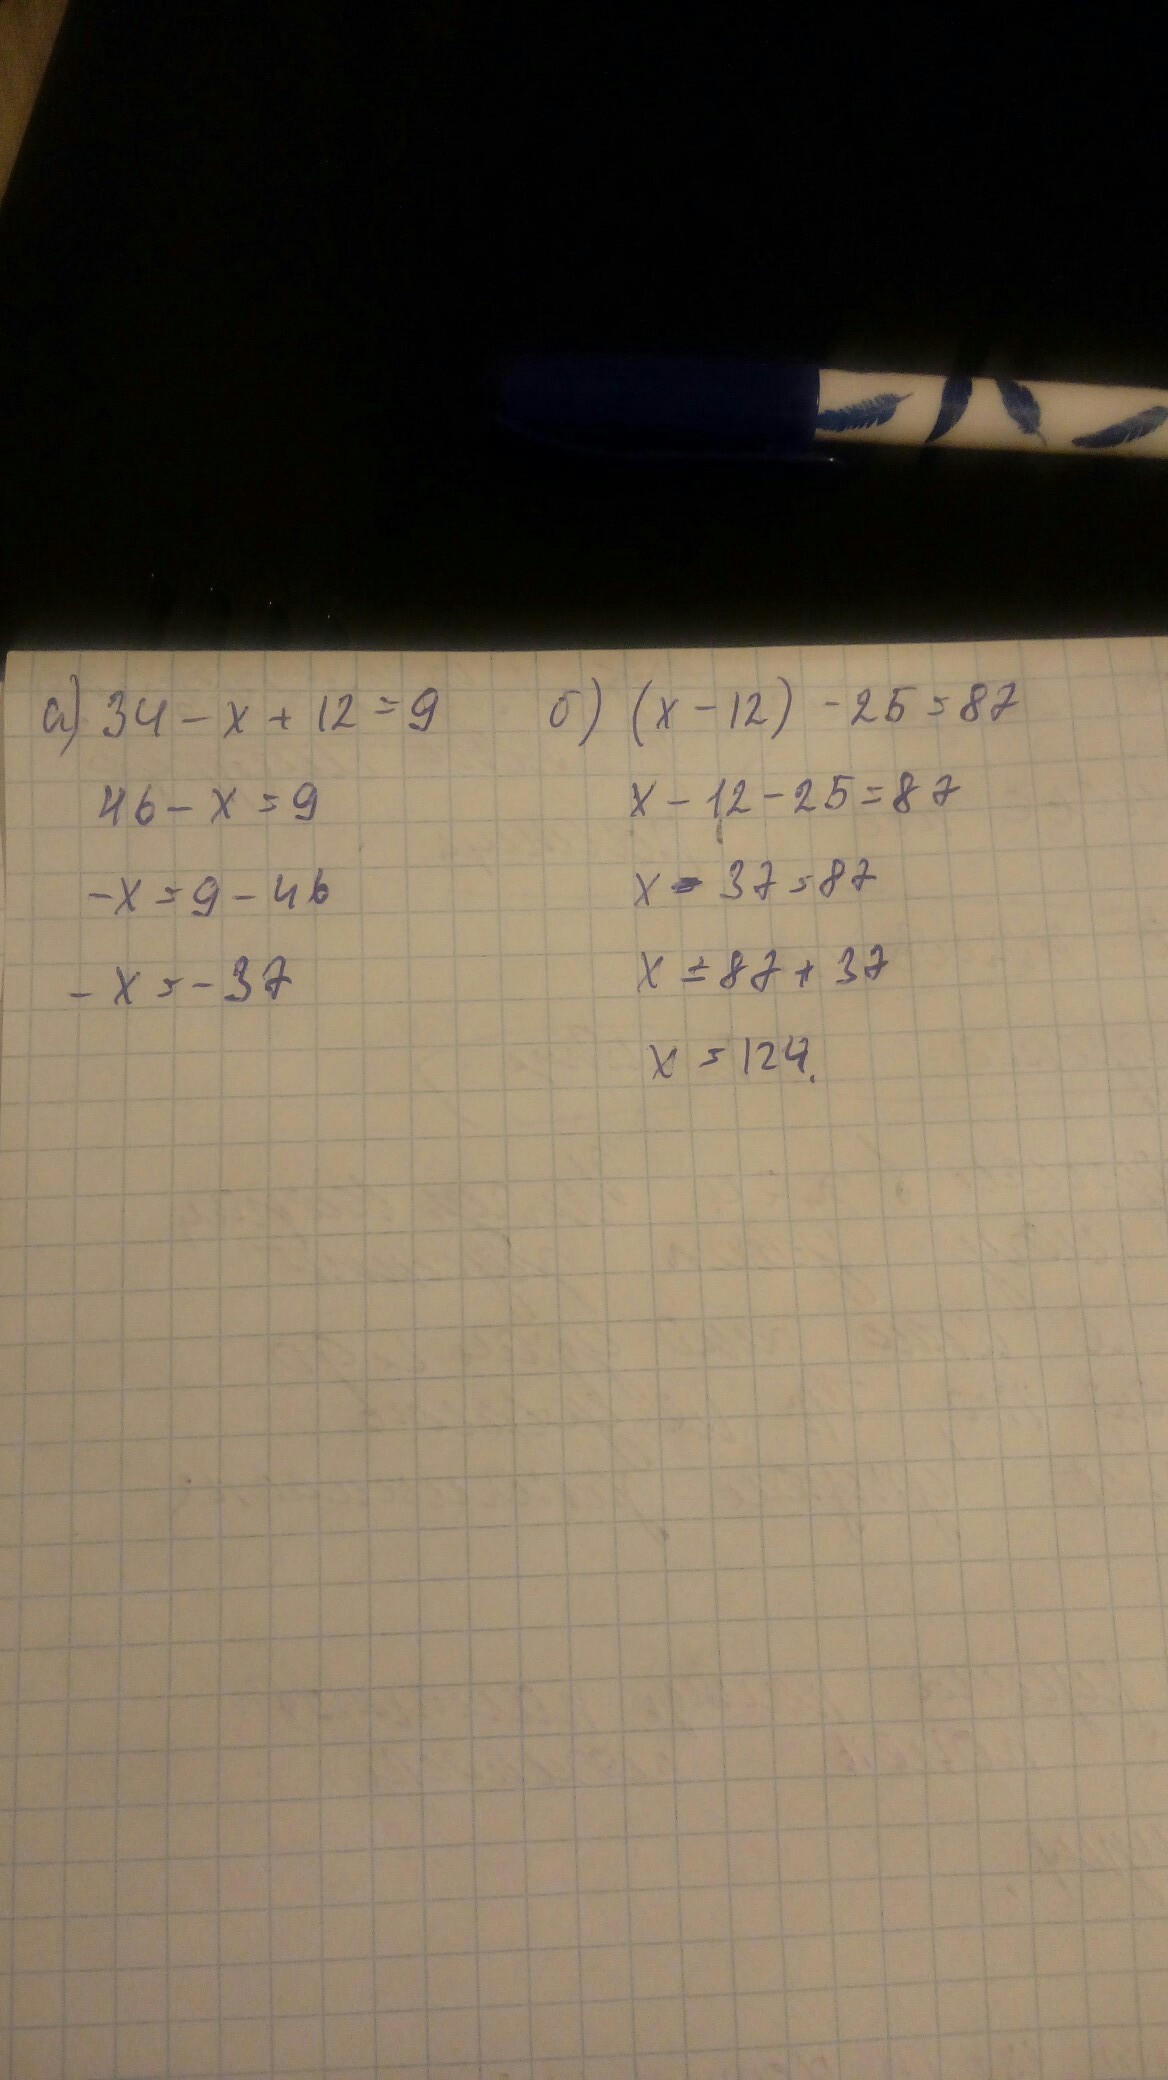 а) 34 - x + 12 = 9
46 - x = 9
-x = 9 - 46
- x = - 37
б) (x - 12) - 25 = 87
x - 12 - 25 = 87
x - 37 = 87
x = 87 + 37
x = 124.